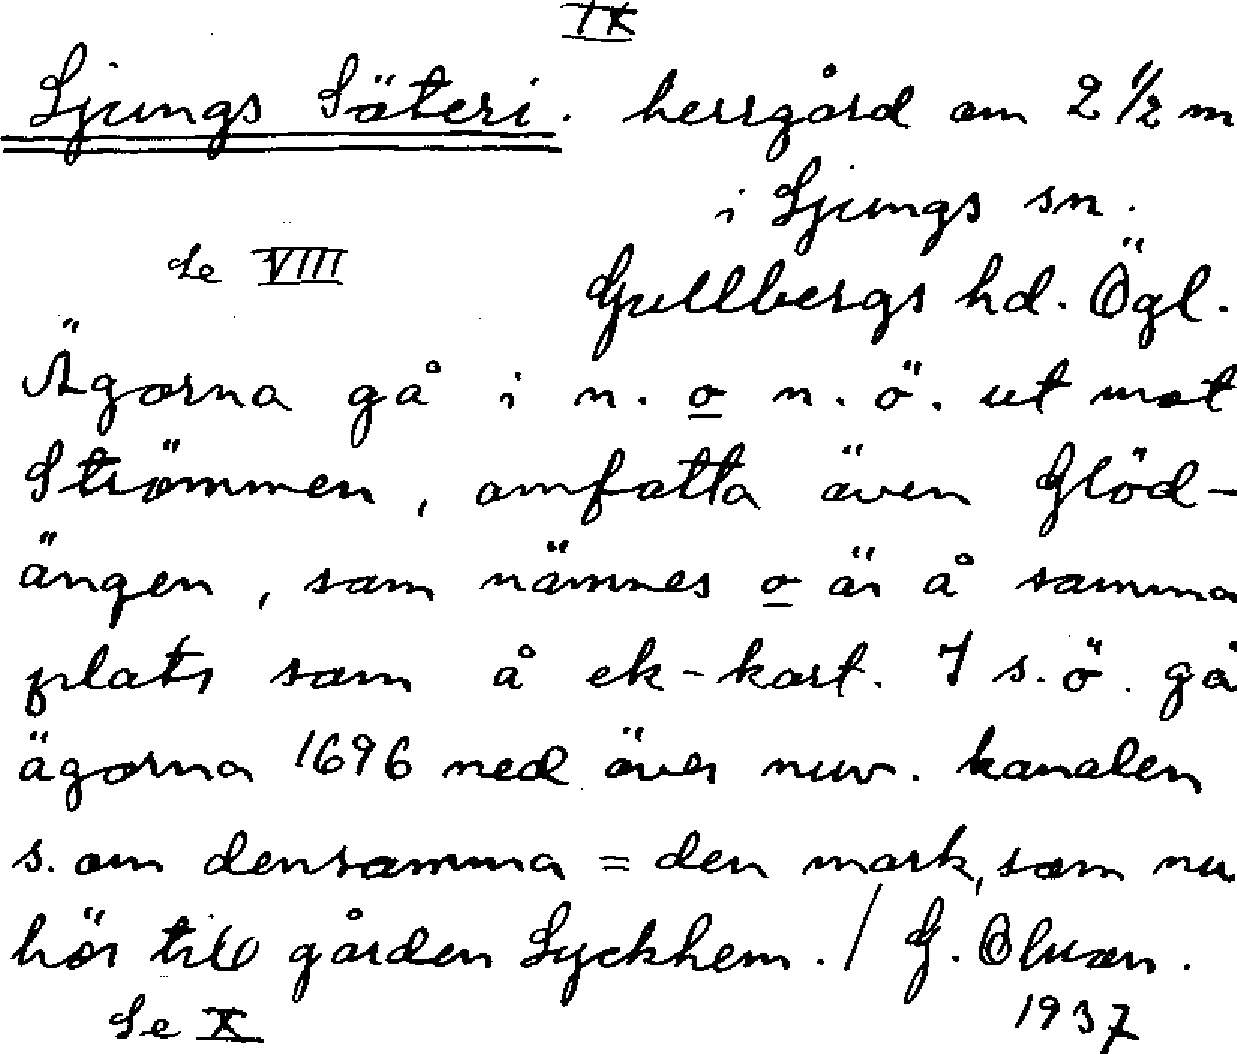 IX
Ljungs Säteri. herrgård om 2 1/2 m
i Ljungs sn.
Se VIII
Gullbergs hd. Ögl.
Ägorna gå i n. o n.ö. ut mot
Strömmen, omfatta även Glöd-
ängen, som nämnes o är å samma
plats som å ek-kart. I s.ö. gå
ägorna 1696 ned över nuv. kanalen
s. om densamma = den mark, som nu
hör till gården Lyckhem. / G. Olsson.
Se X
1937